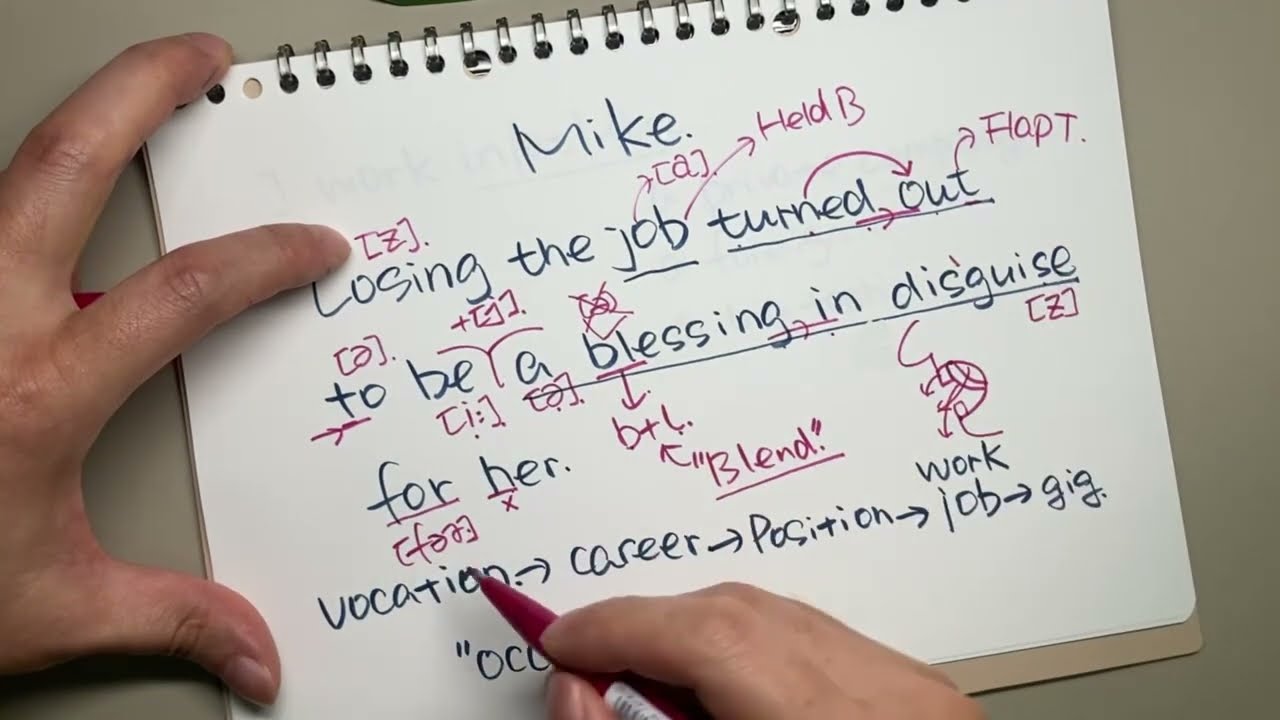 Mike.
Held B
[a].
Flap T.
[z].
Losing the job turned out
+[j].
[ə].
to be a blessing in disguise
[z]
[i:] [ə]
b+l.
"Blend".
for her.
x
[fər]
work
vocation → career → Position → job → gig.
"occ